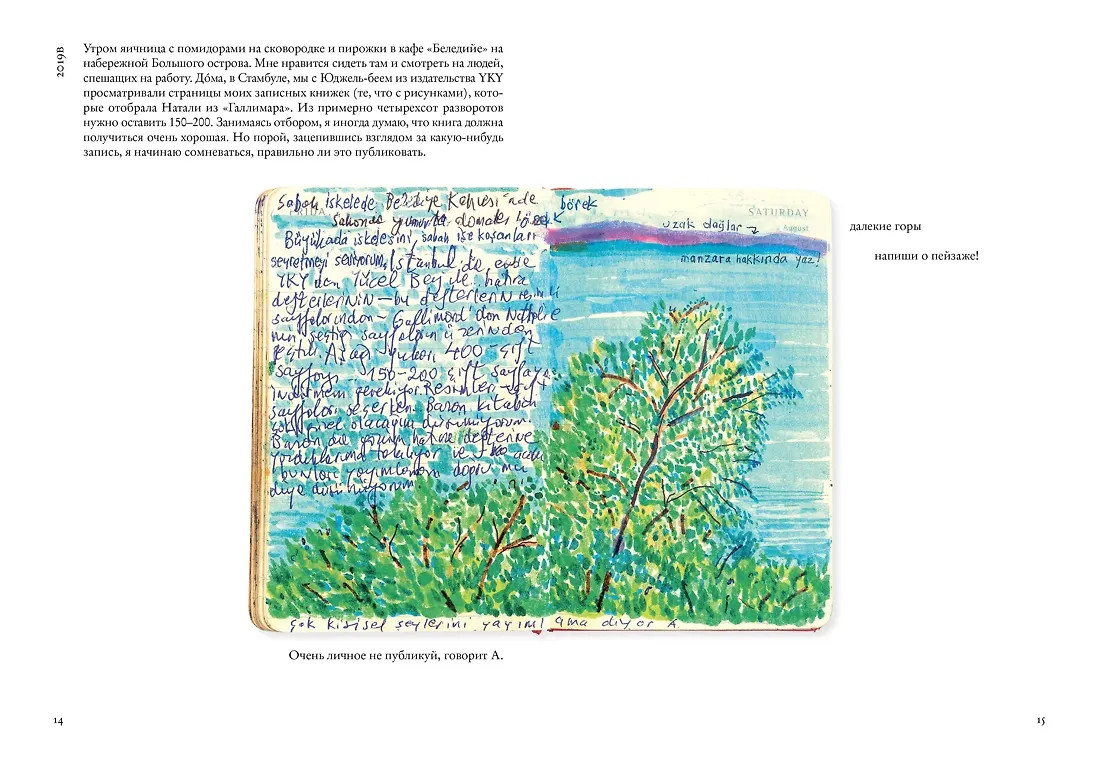 2019В
Утром яичница с помидорами на сковородке и пирожки в кафе «Беледийе» на
набережной Большого острова. Мне нравится сидеть там и смотреть на людей,
спешащих на работу. До́ма, в Стамбуле, мы с Юджель-беем из издательства YKY
просматривали страницы моих записных книжек (те, что с рисунками), кото-
рые отобрала Натали из «Галлимара». Из примерно четырехсот разворотов
нужно оставить 150–200. Занимаясь отбором, я иногда думаю, что книга должна
получиться очень хорошая. Но порой, зацепившись взглядом за какую-нибудь
запись, я начинаю сомневаться, правильно ли это публиковать.
Sabah iskelede Belediye Kahvesi'nde börek
Sahanda yumurta domates börek
Büyükada iskelesini, sabah işe koşanları
seyretmeyi seviyorum. İstanbul'da evde
YKY'den Yücel Bey ile hatıra
defterlerinin – bu defterlerin resimli
sayfalarından – Gallimard'dan Nathalie'
nin seçtiği sayfaların üzerinden
geçtik. Aşağı yukarı 400 çift
sayfayı 150–200 çift sayfaya
indirmem gerekiyor. Resimler
sayfaları seçerken Bazan kitabın
çok güzel olacağını düşünüyorum
Bazan da gözüm hatıra defterine
yazdıklarıma takılıyor ve
bunları yayımlamam doğru mu
diye düşünüyorum
SATURDAY
August
uzak dağlar
manzara hakkında yaz!
далекие горы
напиши о пейзаже!
çok kişisel şeylerini yayımlama diyor A.
Очень личное не публикуй, говорит А.
14
15